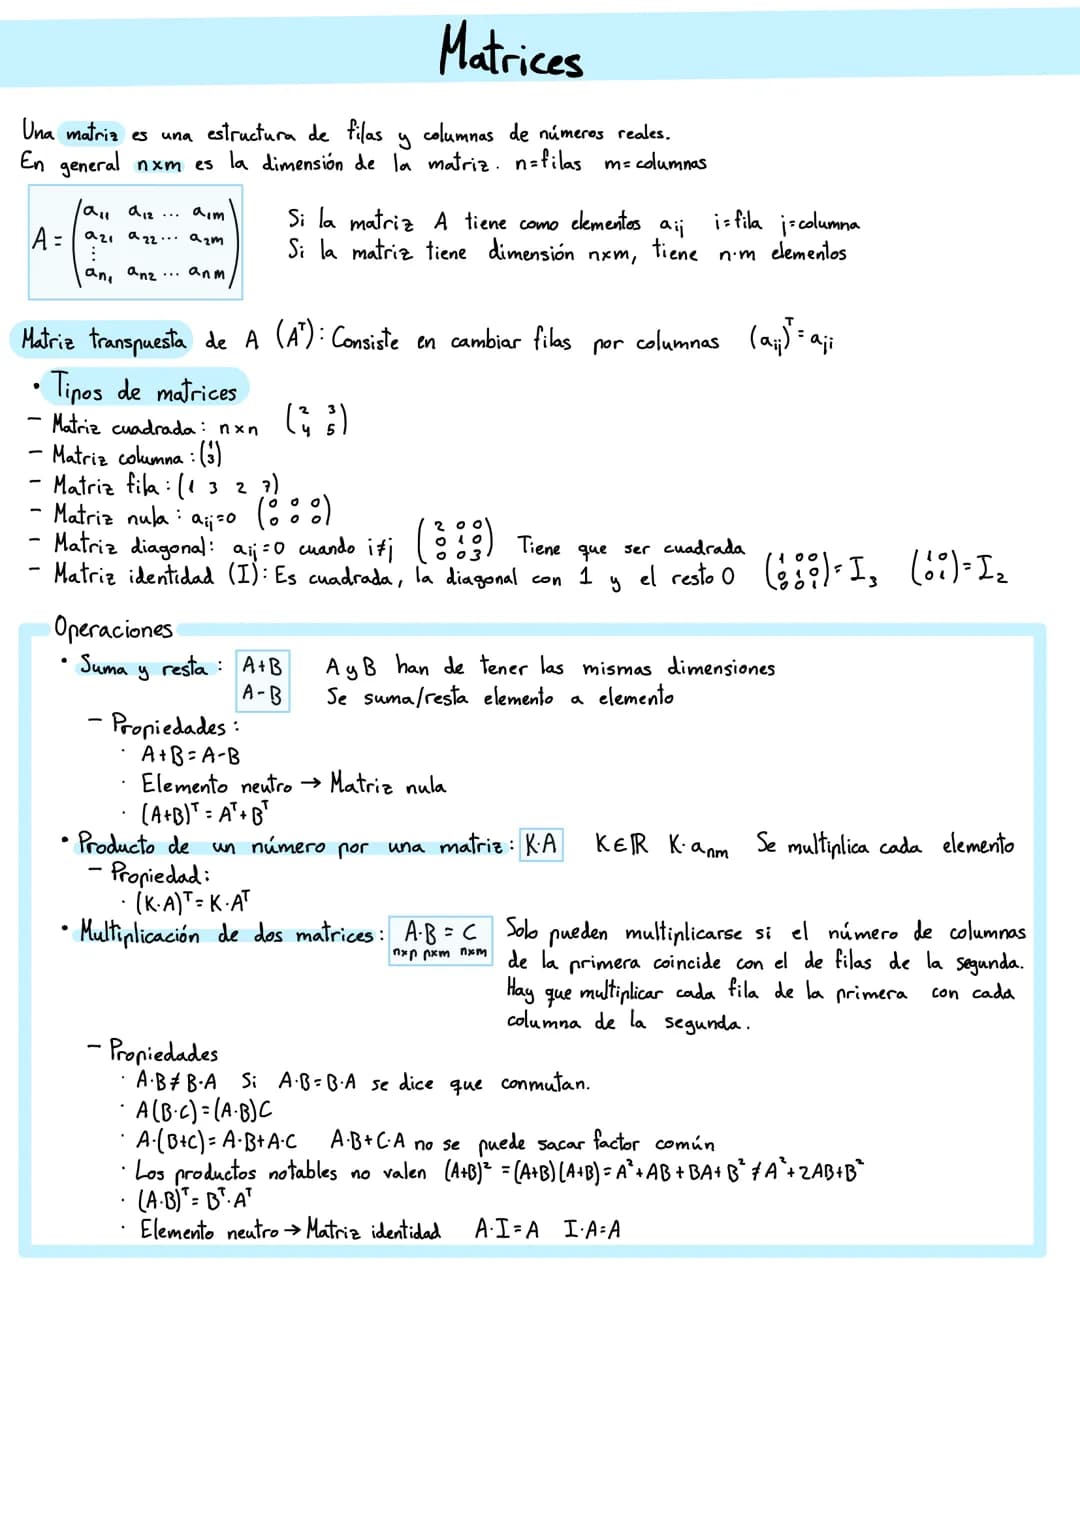 Matrices
Una matriz es una estructura de filas y columnas de números reales.
En general nxm es la dimensión de la matriz. n=filas m=columnas
A = (a11 a12 ... a1m
a21 a22 ... a2m
⋮
an1 an2 ... anm)
Si la matriz A tiene como elementos aij i=fila j=columna
Si la matriz tiene dimensión nxm, tiene n·m elementos
Matriz transpuesta de A (Aᵀ): Consiste en cambiar filas por columnas (aij)ᵀ = aji
• Tipos de matrices
- Matriz cuadrada: nxn (2 3
4 5)
- Matriz columna: (1
3)
- Matriz fila: (1 3 2 7)
- Matriz nula: aij=0 (0 0 0
0 0 0)
- Matriz diagonal: aij=0 cuando i≠j (2 0 0
0 1 0
0 0 3) Tiene que ser cuadrada
- Matriz identidad (I): Es cuadrada, la diagonal con 1 y el resto 0 (1 0 0
0 1 0
0 0 1) = I₃ (1 0
0 1) = I₂
Operaciones
• Suma y resta: A+B A y B han de tener las mismas dimensiones
A-B Se suma/resta elemento a elemento
- Propiedades:
· A+B=A-B
· Elemento neutro → Matriz nula
· (A+B)ᵀ = Aᵀ+Bᵀ
• Producto de un número por una matriz: K·A K∈ℝ K·anm Se multiplica cada elemento
- Propiedad:
· (K·A)ᵀ = K·Aᵀ
• Multiplicación de dos matrices: A·B = C
nxp pxm nxm
Solo pueden multiplicarse si el número de columnas
de la primera coincide con el de filas de la segunda.
Hay que multiplicar cada fila de la primera con cada
columna de la segunda.
- Propiedades
· A·B≠B·A Si A·B=B·A se dice que conmutan.
· A(B·C)=(A·B)C
· A·(B+C)=A·B+A·C A·B+C·A no se puede sacar factor común
· Los productos notables no valen (A+B)² =(A+B)(A+B)=A²+AB+BA+B² ≠A²+2AB+B²
· (A·B)ᵀ = Bᵀ·Aᵀ
· Elemento neutro → Matriz identidad A·I=A I·A=A